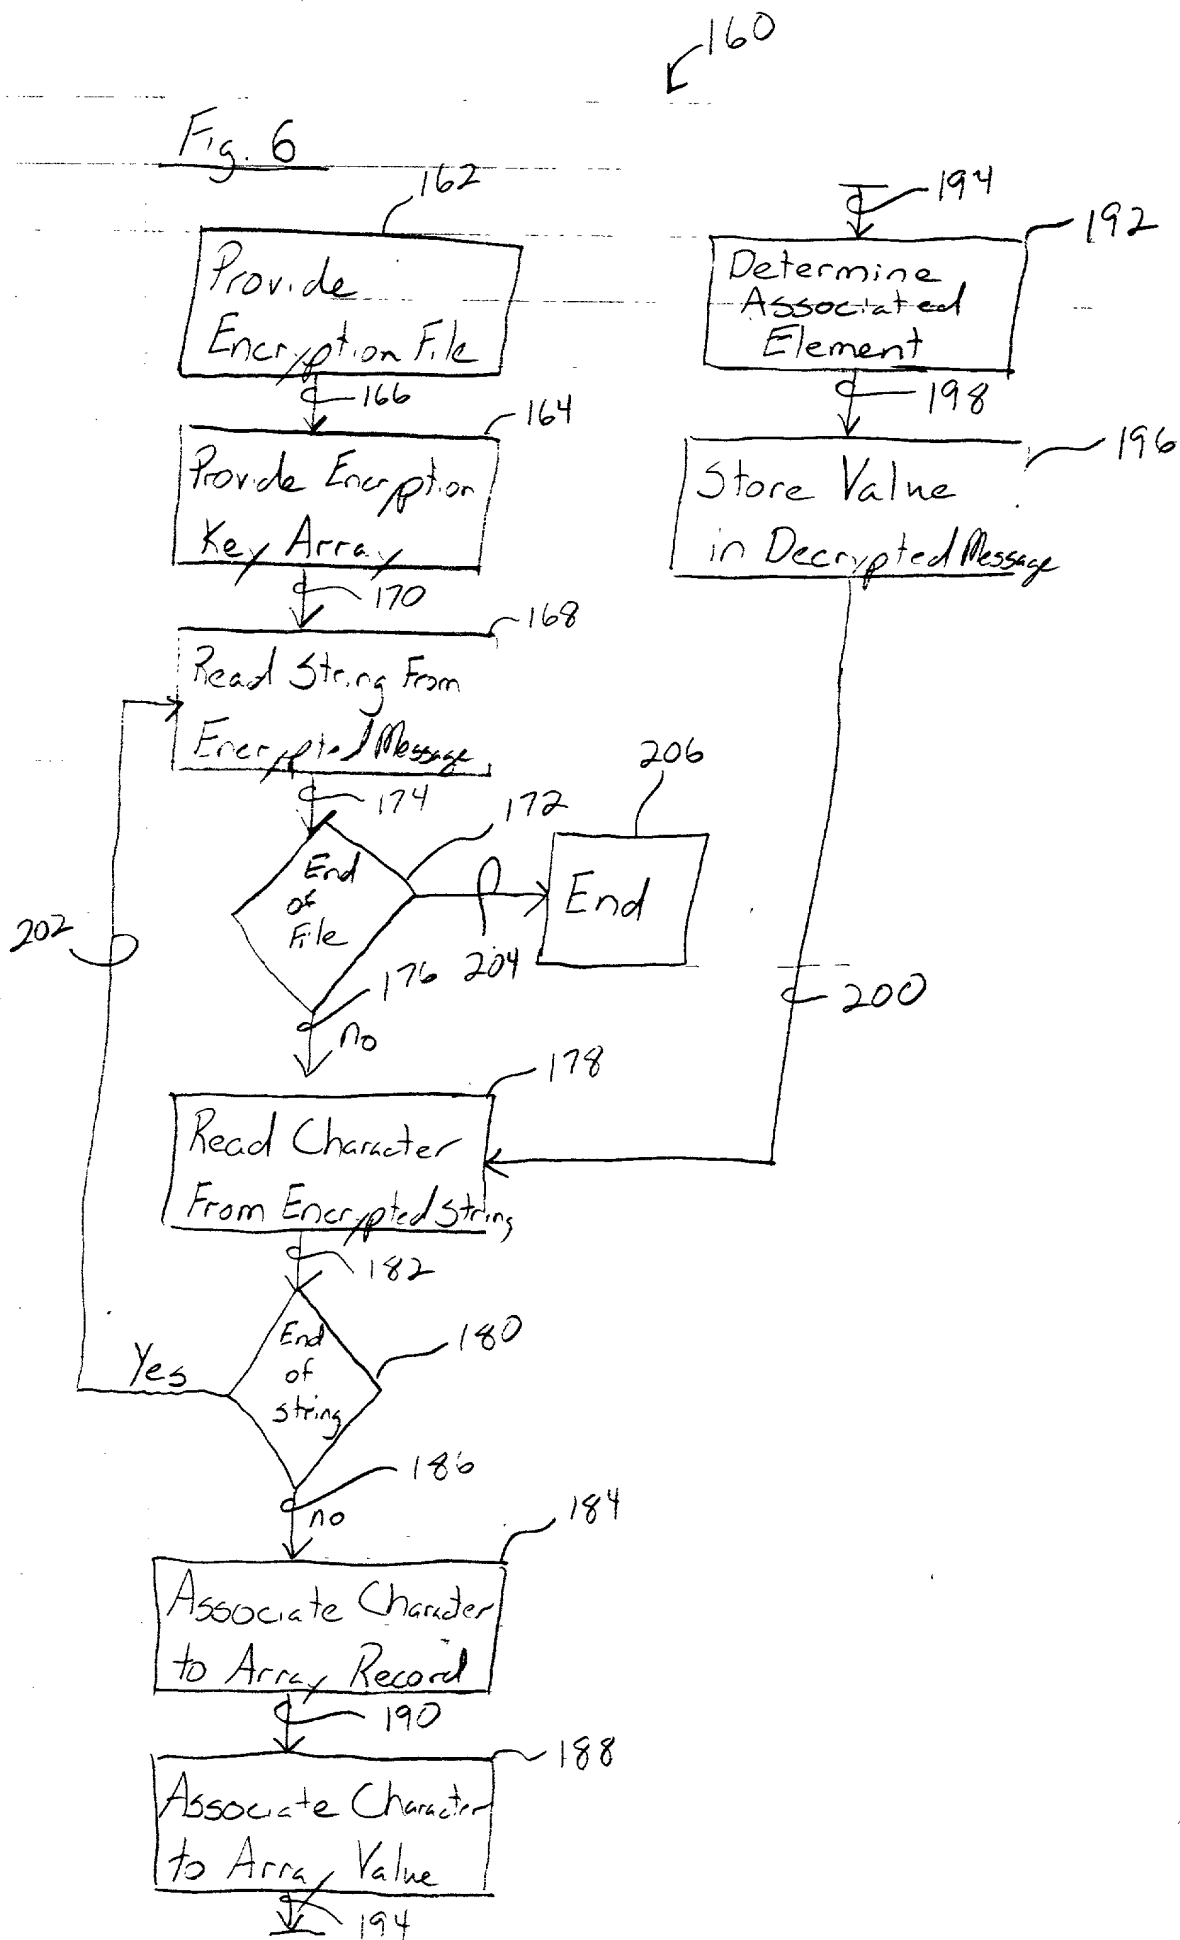 160
Fig. 6
162
Provide
Encryption File
166
164
Provide Encryption
Key Array
170
168
Read String From
Encrypted Message
174
172
End
of
File
204
206
End
176
no
178
Read Character
From Encrypted String
182
180
End
of
string
Yes
202
186
no
184
Associate Character
to Array Record
190
188
Associate Character
to Array Value
194
194
192
Determine
Associated
Element
198
196
Store Value
in Decrypted Message
200